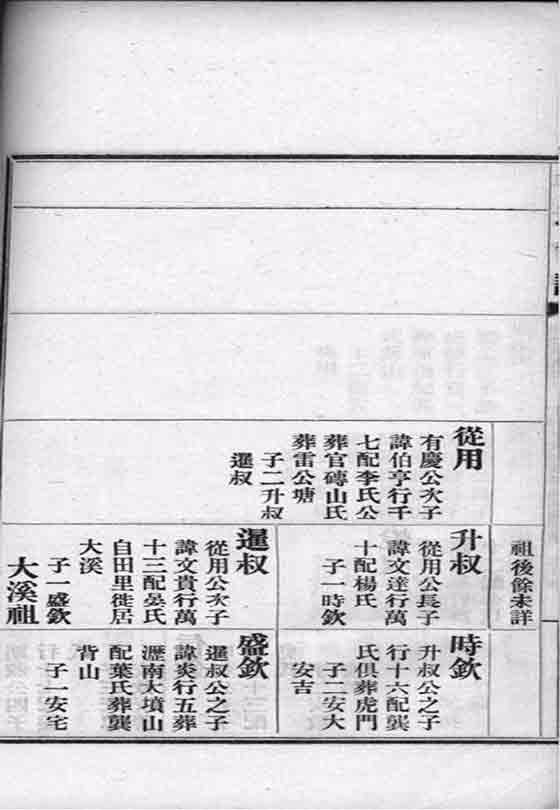 從用
有慶公次子
諱伯亨行千
七配李氏公
葬官磚山氏
葬雷公塘
子二升叔
暹叔
祖後餘未詳
升叔
從用公長子
諱文達行萬
十配楊氏
子一時欽
暹叔
從用公次子
諱文貴行萬
十三配晏氏
自田里徙居
大溪
子一盛欽
大溪祖
時欽
升叔公之子
行十六配龔
氏俱葬虎門
子二安大
安吉
盛欽
暹叔公之子
諱炎行五葬
瀝南大墳山
配葉氏葬龔
背山
子一安宅